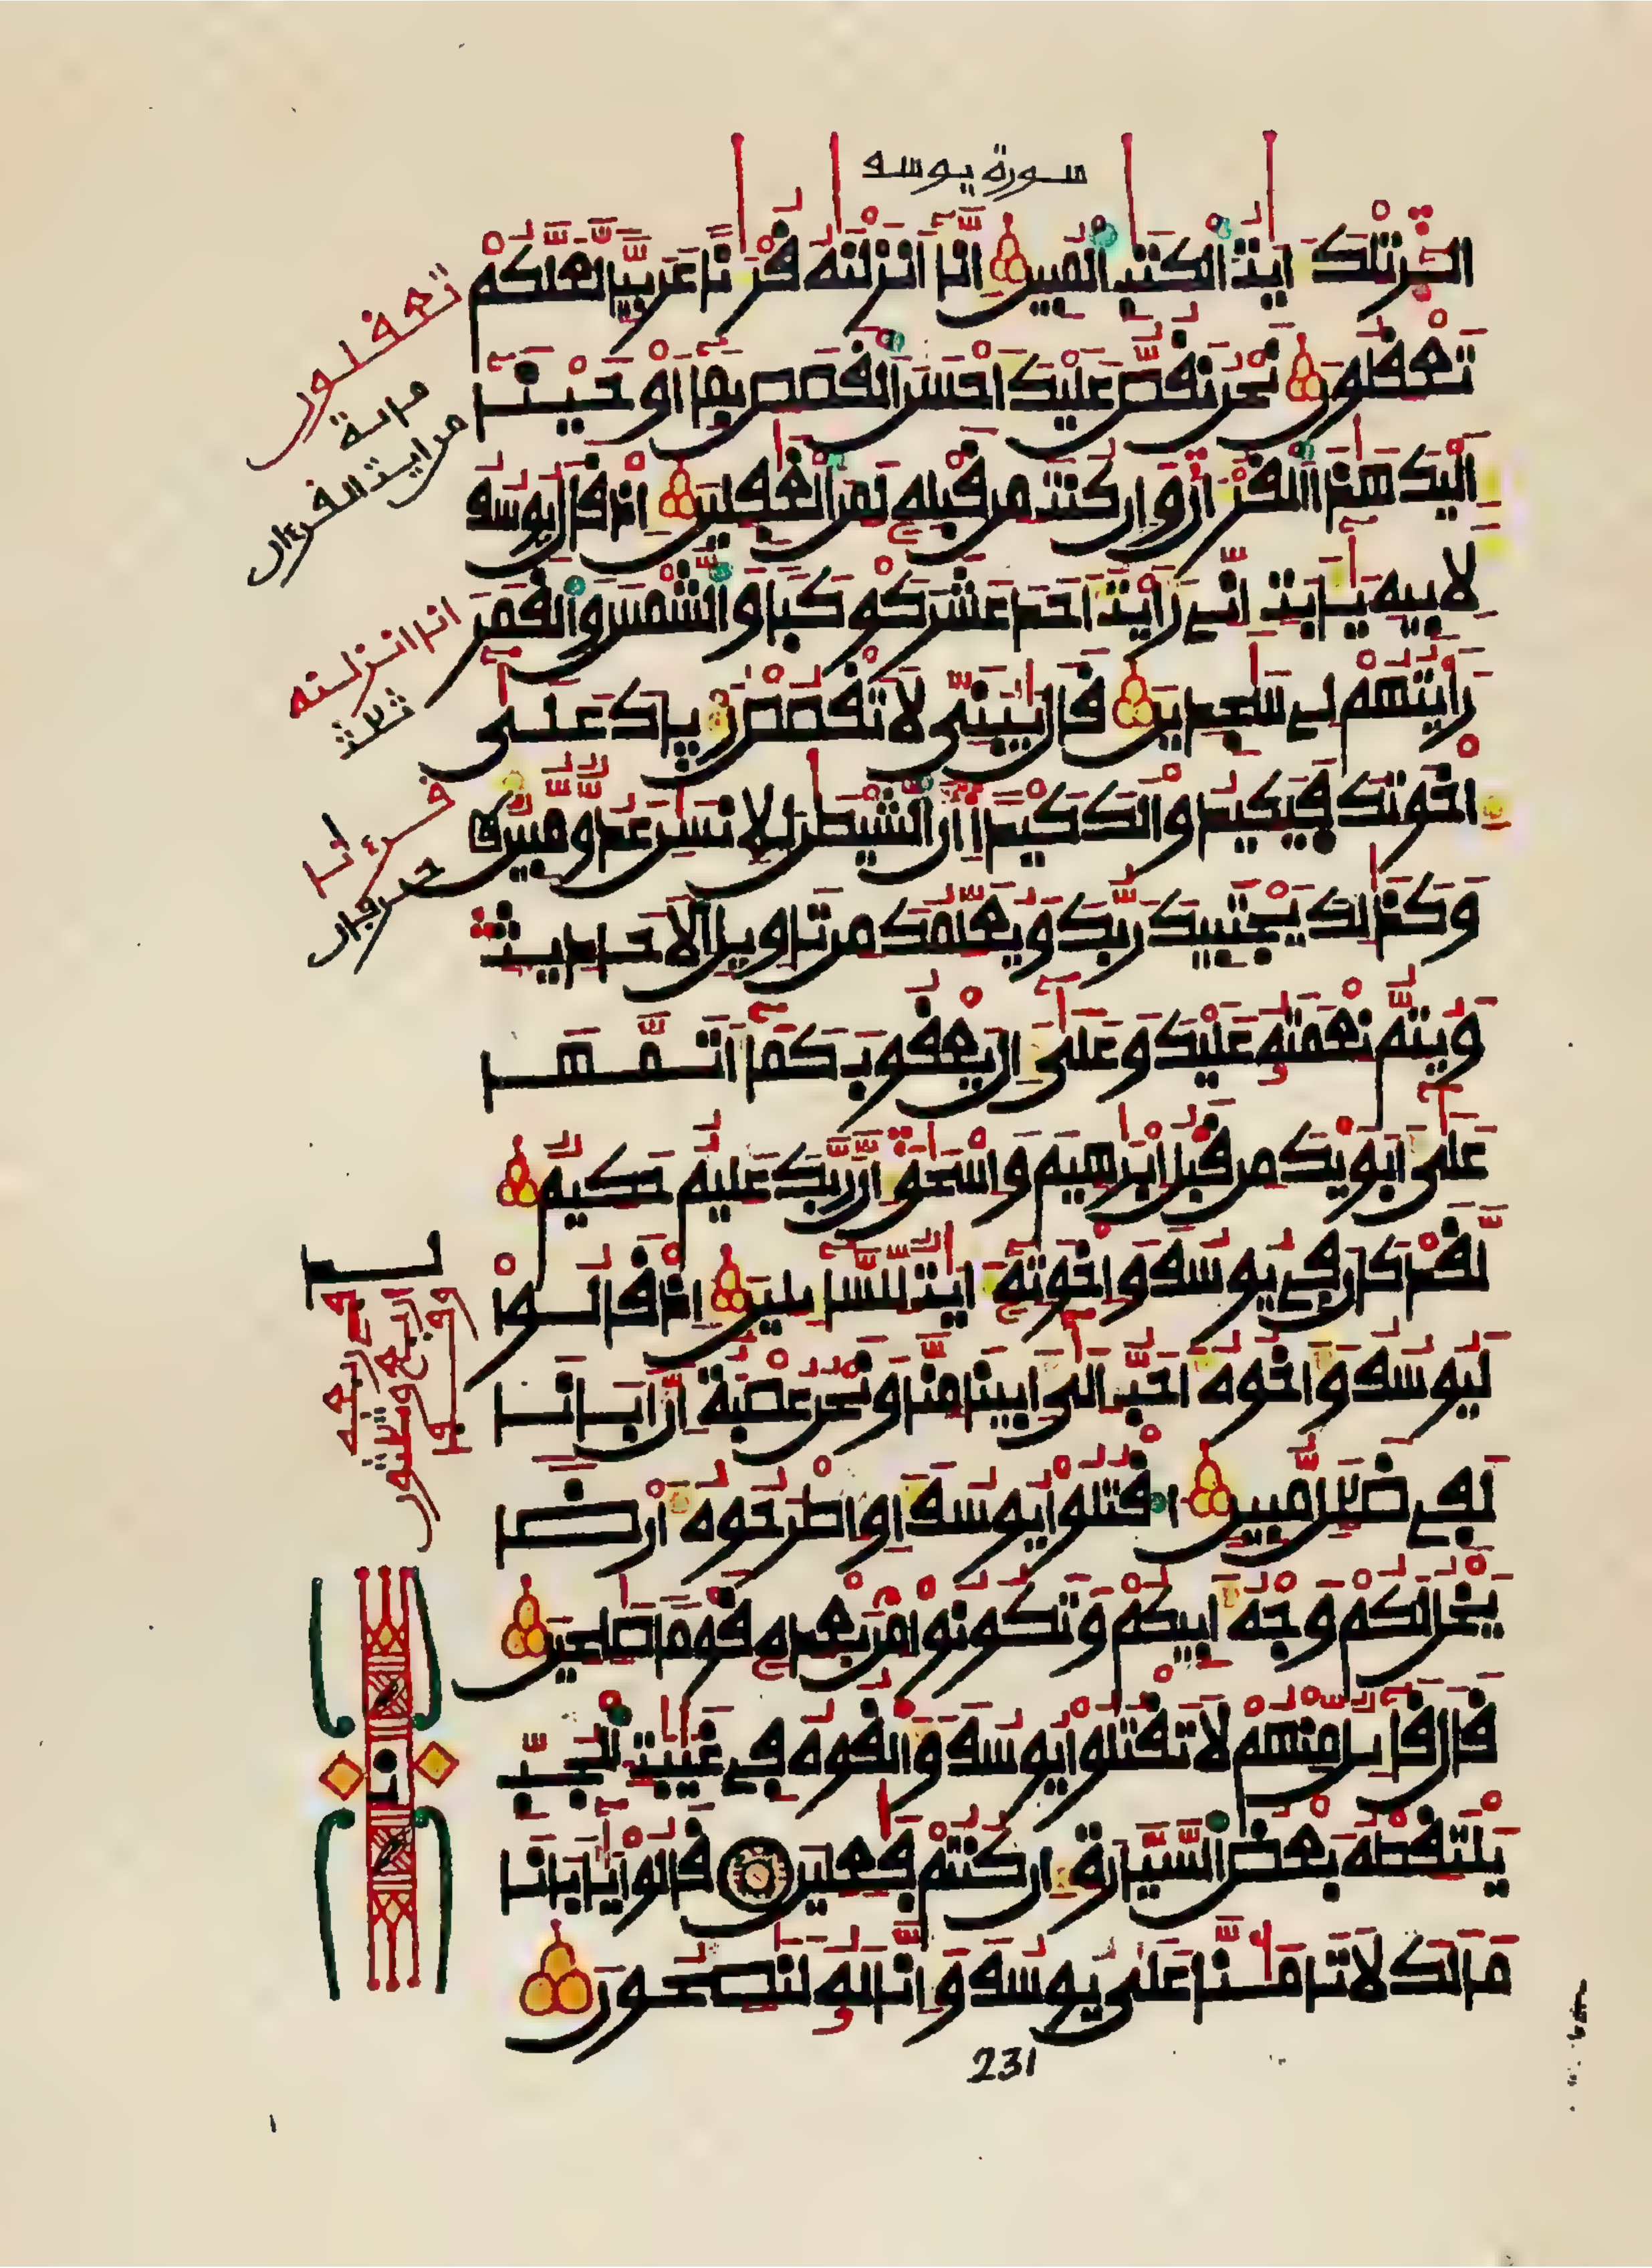 سورة يوسف
الر تلك ايت الكتب المبين انا انزلنه قرنا عربيا لعلكم
تعقلون نحن نقص عليك احسن القصص بما اوحينا
اليك هذا القرءان وان كنت من قبله لمن الغفلين اذ قال يوسف
لابيه يابت اني رايت احد عشر كوكبا والشمس والقمر
رايتهم لي سجدين قال يبني لا تقصص رءياك على
اخوتك فيكيدوا لك كيدا ان الشيطن للانسن عدو مبين
وكذلك يجتبيك ربك ويعلمك من تاويل الاحاديث
ويتم نعمته عليك وعلى ال يعقوب كما اتمها
على ابويك من قبل ابرهيم واسحق ان ربك عليم حكيم
لقد كان في يوسف واخوته ايت للسايلين اذ قالوا
ليوسف واخوه احب الى ابينا منا ونحن عصبة ان ابانا
لفي ضلل مبين اقتلوا يوسف او اطرحوه ارضا
يخل لكم وجه ابيكم وتكونوا من بعده قوما صلحين
قال قايل منهم لا تقتلوا يوسف والقوه في غيبت الجب
يلتقطه بعض السيارة ان كنتم فعلين قالوا يابانا
مالك لا تامنا على يوسف وانا له لنصحون
231
تعقلون
مرية
من ايت القرءان
انا انزلنه
ثلث
قرءنا
حرفان